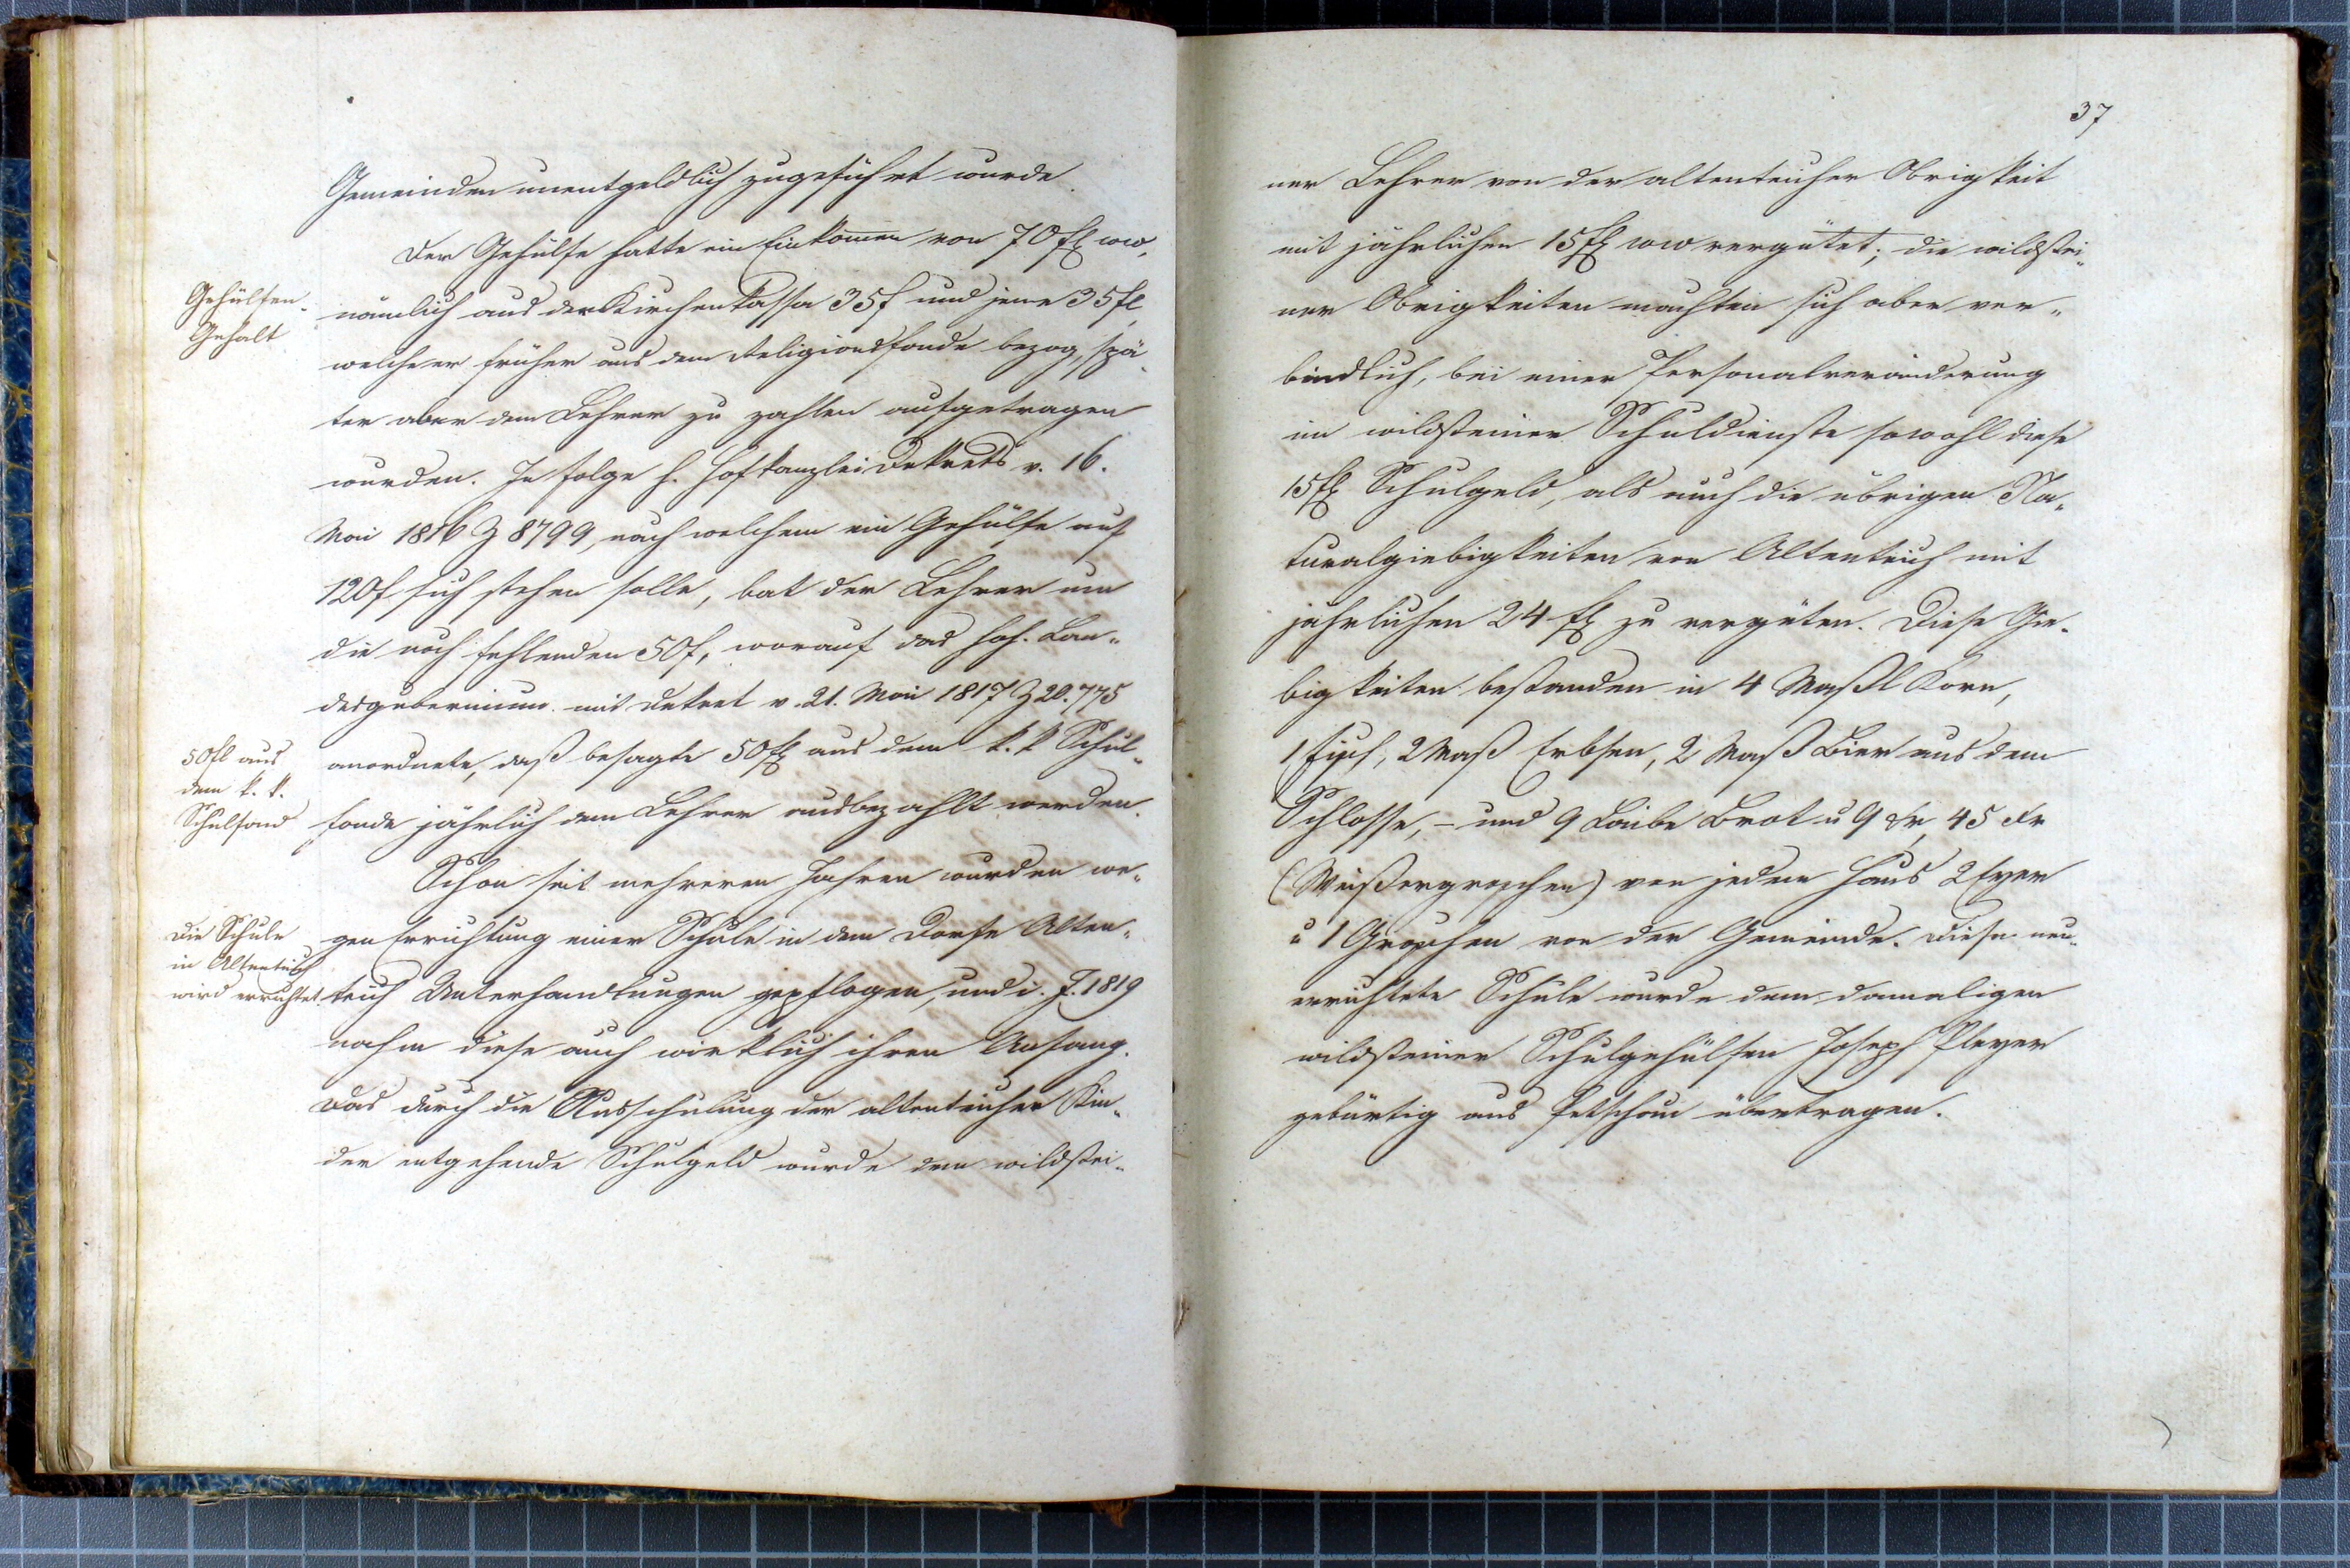 Gemeinden unentgeldlich zugeführt wurde.
Der Gehülfe hatte ein Einkomen von 70 fl ww,
Gehülfen-
Gehalt
nämlich aus der Kirchenkassa 35 f und jene 35 fl,
welche er früher aus dem Religionsfonde bezog, spä-
ter aber dem Lehrer zu zahlen aufgetragen
wurden. In Folge h. Hofkanzleidekrets v. 16.
Mai 1816 Z 8799, nach welchem ein Gehülfe auf
120 f sich stehen solle, bat der Lehrer um
die noch fehlenden 50 f, worauf das hoh. Lan-
desgubernium mit Dekret v. 21. Mai 1817 Z 20.775
50 fl aus
dem k. k.
Schulfond
anordnete, daß besagte 50 fl aus dem k. k Schul-
fonde jährlich dem Lehrer ausbezahlt werden.
Schon seit mehreren Jahren wurden we-
Die Schule
in Altenteich
wird errichtet.
gen Errichtung einer Schule in dem Dorfe Alten-
teich Unterhandlungen gepflogen, und i. J. 1819
nahm diese auch wirklich ihren Anfang.
Das durch die Ausschulung der altenteicher Kin-
der entgehende Schulgeld wurde dem wildstei-
37
ner Lehrer von der altenteicher Obrigkeit
mit jährlichen 15 fl ww vergütet; die wildstei-
ner Obrigkeiten machten sich aber ver-
bindlich, bei einer Personalveränderung
im wildsteiner Schuldienste sowohl diese
15 fl Schulgeld, als auch die übrigen Na-
turalgiebigkeiten von Altenteich mit
jährlichen 24 fl zu vergüten. Diese Gie-
bigkeiten bestanden in 4 Maßl Korn,
1 Fisch, 2 Maß Erbsen, 2 Maß Bier aus dem
Schlosse, – und 9 Laibe Brot u 9 kr, 45 kr
(Weißergroschen) von jedem Haus 2 Eyer
u 1 Groschen von der Gemeinde. Diese neu-
errichtete Schule wurde dem damaligen
wildsteiner Schulgehülfen Joseph Pleyer
gebürtig aus Petschau übertragen.